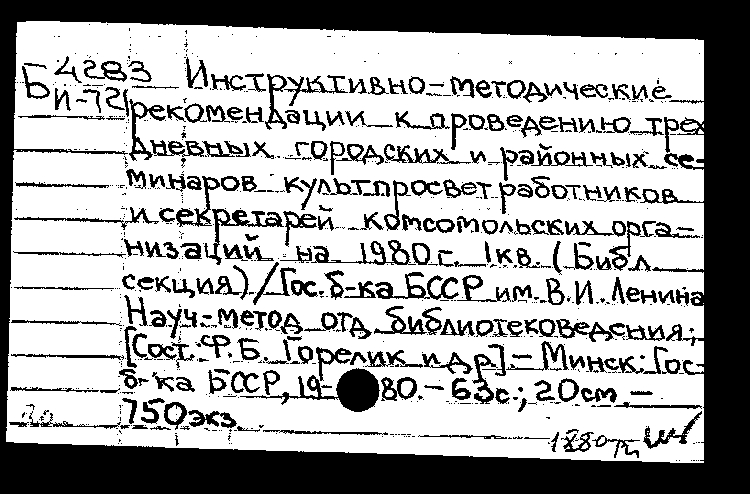 Б 4283
И-72
Инструктивно-методические
рекомендации к проведению трех
дневных городских и районных се-
минаров культпросветработников
и секретарей комсомольских орга-
низаций на 1980г. 1кв. (Библ.
секция)/Гос. б-ка БССР им. В.И. Ленина
Науч.-метод. отд. библиотековедения;
[Сост. Ф.Б. Горелик и др].- Минск: Гос.
б-ка БССР, 19-80.- 63с.; 20см.-
750экз.